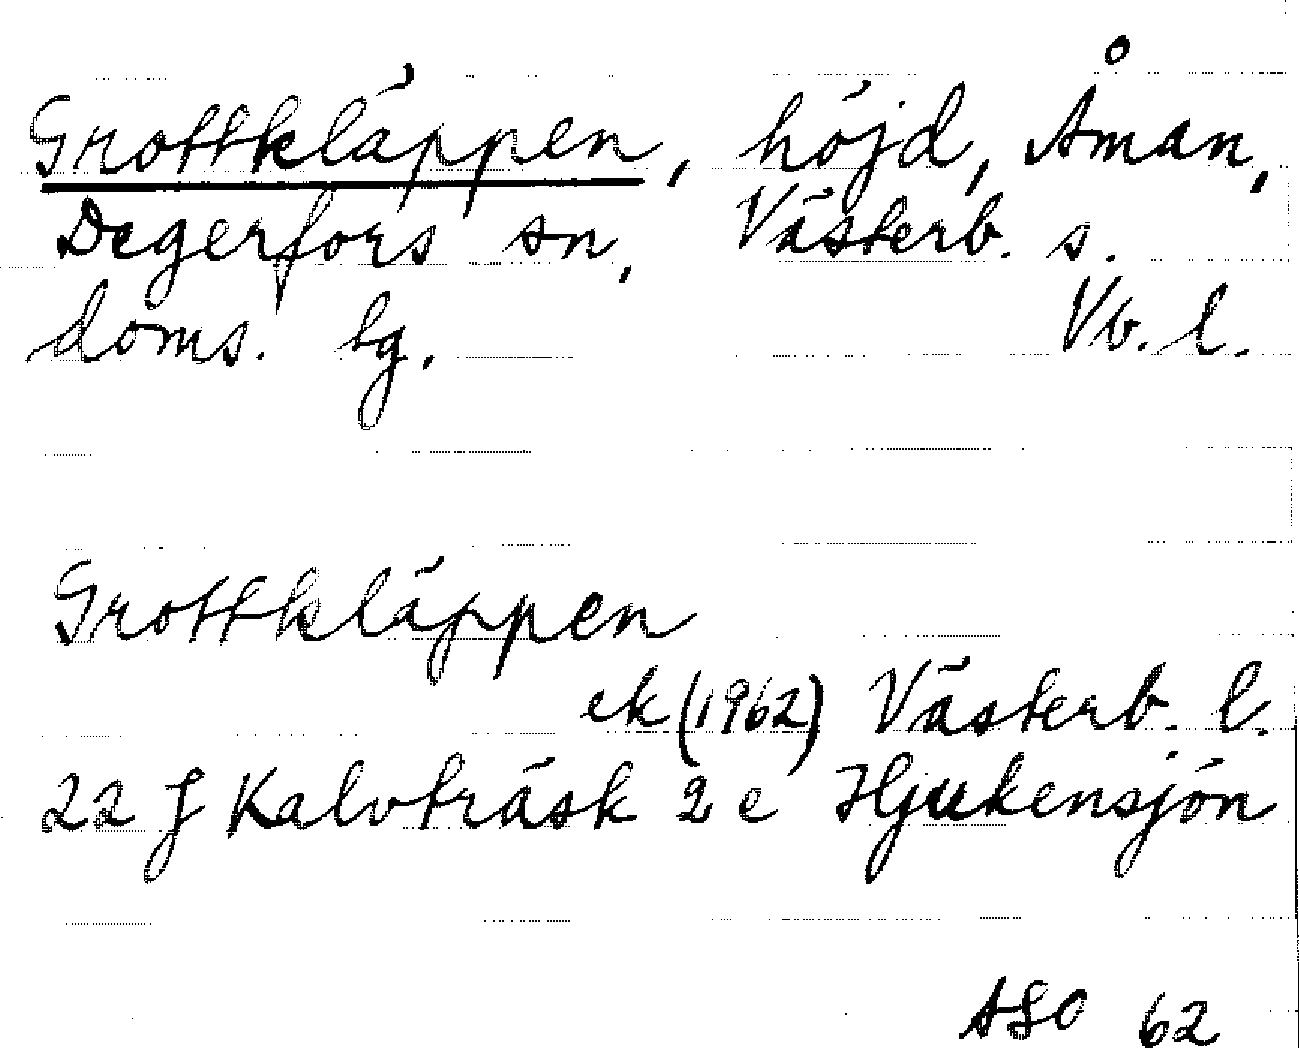 Grottkläppen, höjd, Åman,
Degerfors sn, Västerb. s.
doms. lg. Vb. l.
Grottkläppen
ek (1962) Västerb. l.
22 J Kalvträsk 2 e Hjukensjön
ASO 62